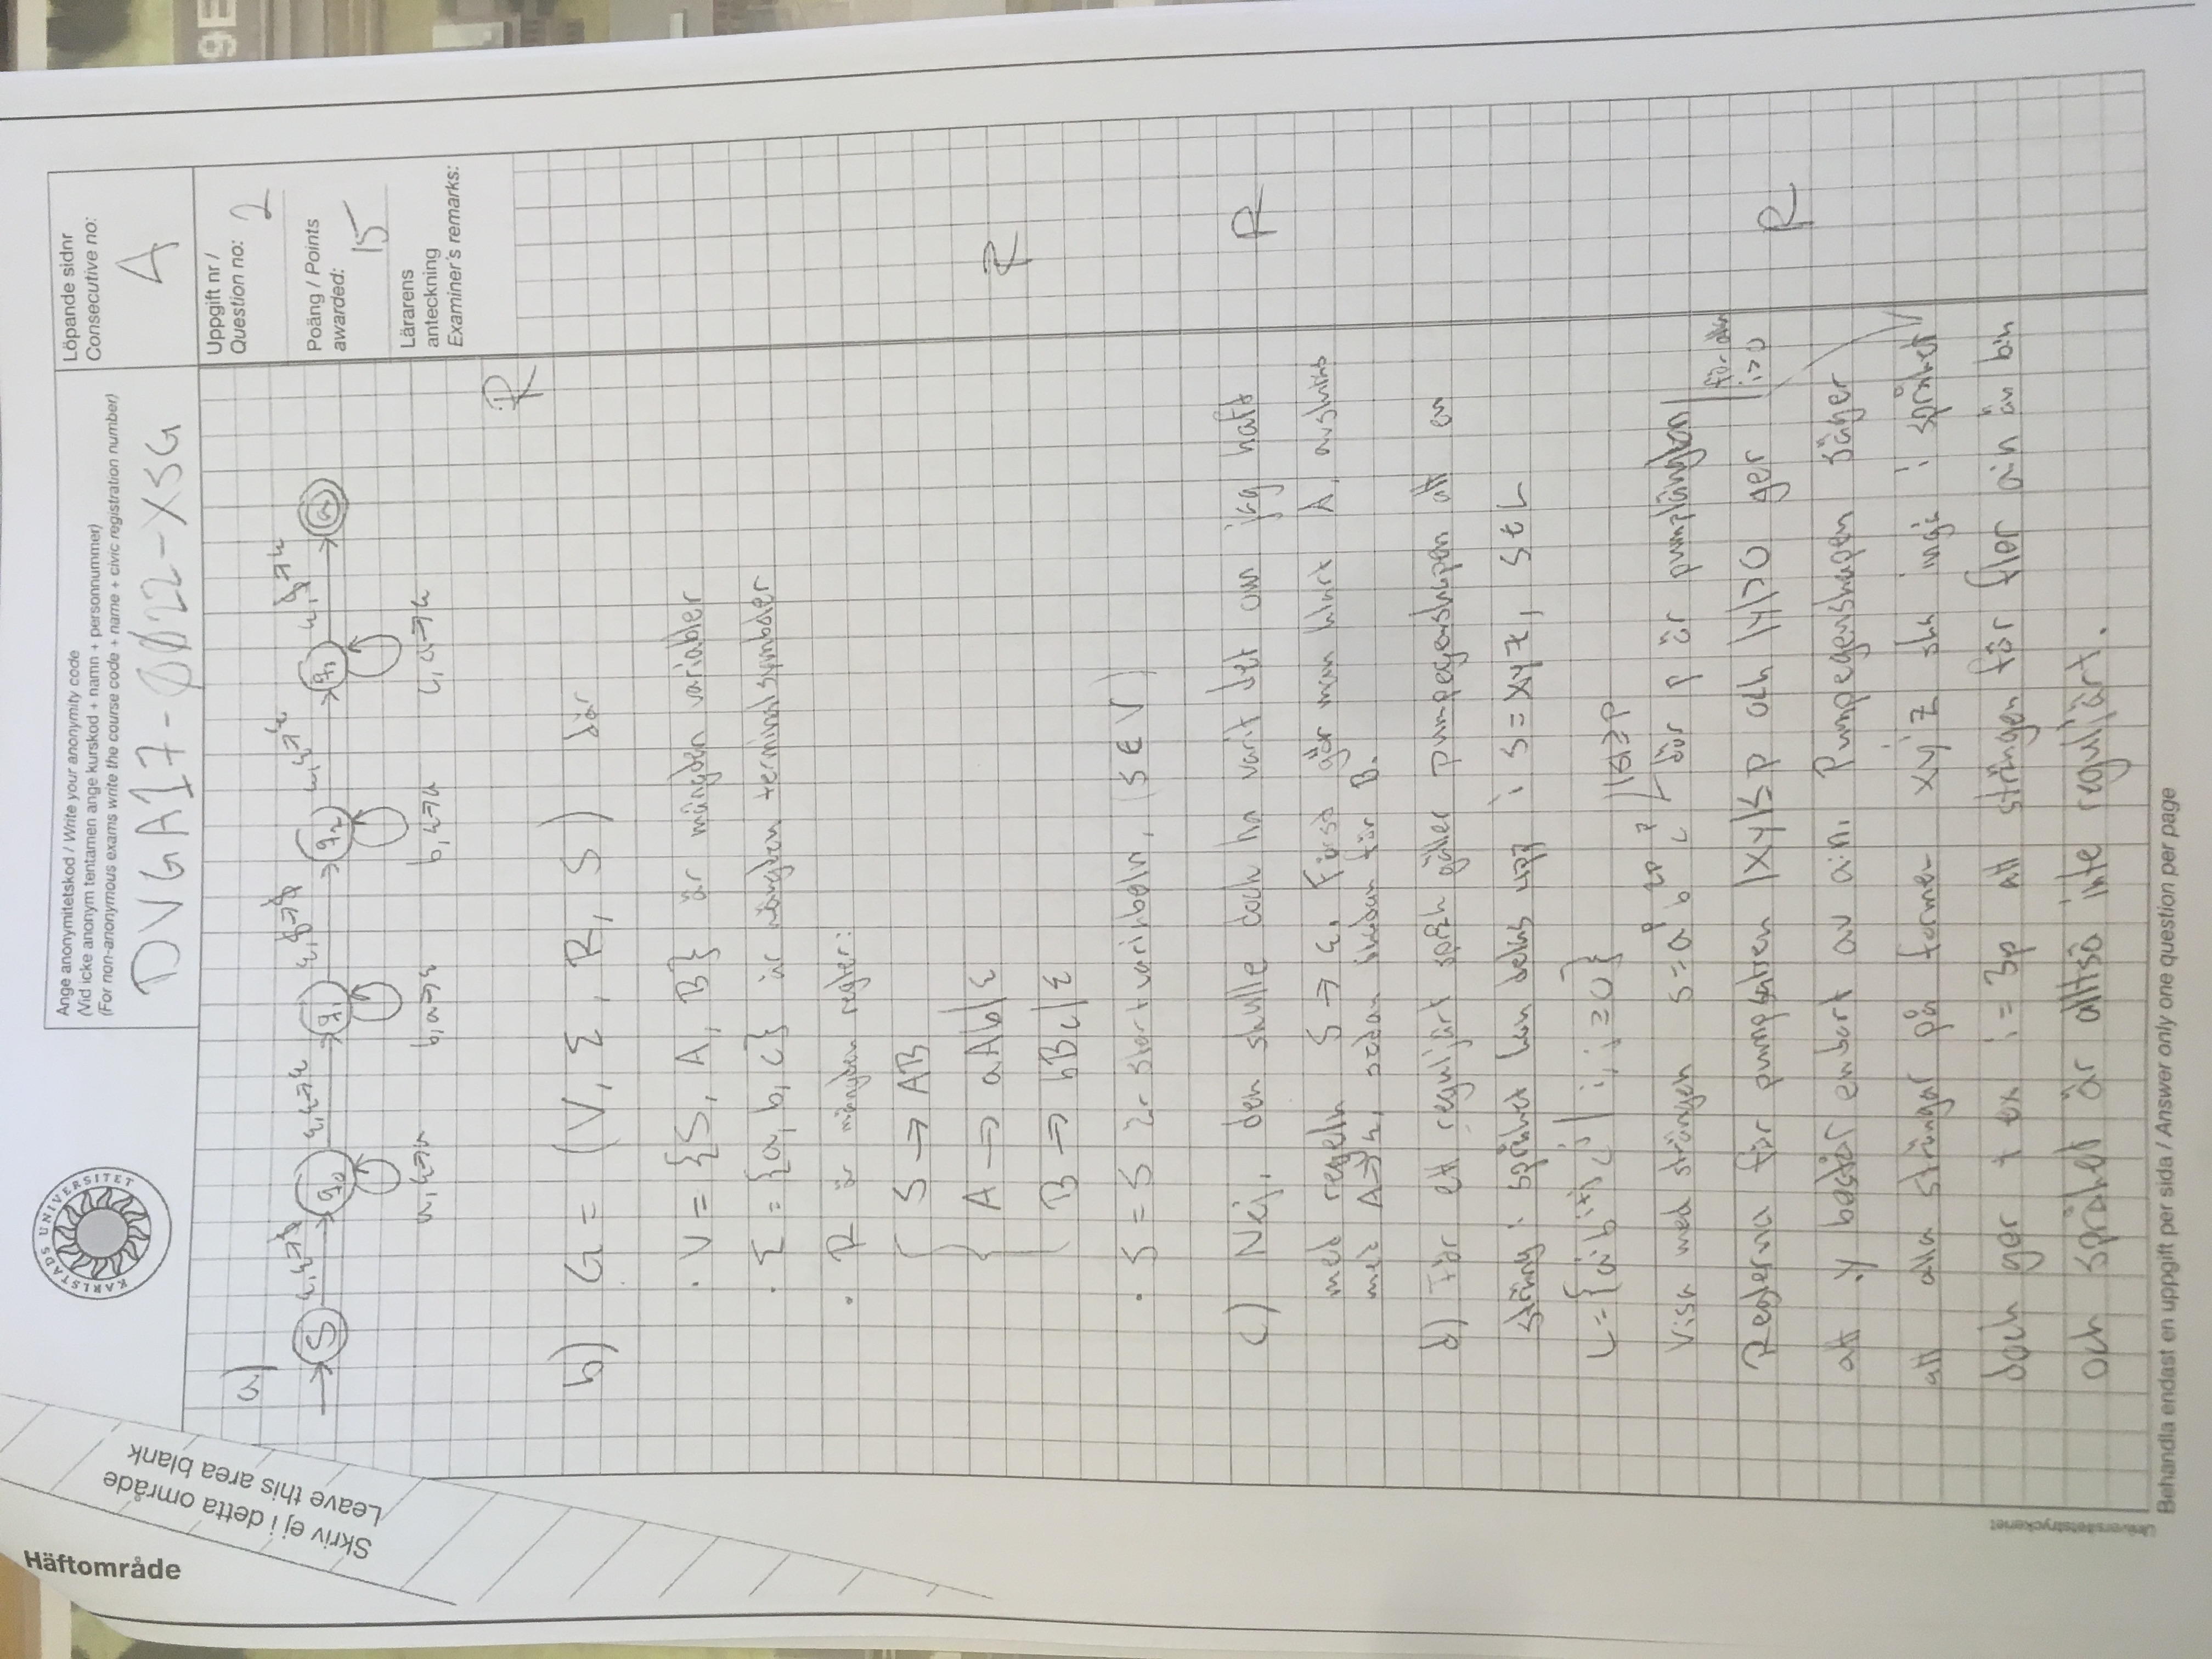 Häftområde
Skriv ej i detta område
Leave this area blank
KARLSTADS UNIVERSITET
Ange anonymitetskod / Write your anonymity code
(Vid icke anonym tentamen ange kurskod + namn + personnummer)
(For non-anonymous exams write the course code + name + civic registration number)
DVGA17-0022-XSG
Löpande sidnr
Consecutive no:
4
Uppgift nr /
Question no: 2
Poäng / Points
awarded:
15
Lärarens
anteckning
Examiner's remarks:
a)
ε,ε→$ ε,ε→ε ε,$→$ ε,ε→ε ε,$→ε
S q₀ q₁ q₂ q₃ a
a,ε→a b,a→ε b,ε→a c,a→ε
R
b) G = (V, Σ, R, S) där
· V = {S, A, B} är mängden variabler
· Σ = {a, b, c} är mängden terminalsymboler
· R är mängden regler:
S → AB
A → aAb|ε
B → bBc|ε
R
· S = S är startvariabeln, (S ∈ V)
c) Nej, den skulle dock ha varit det om jag haft
R
med regeln S → ε. Först gör man klart A, avslutas
med A→ε, sedan likadan för B.
d) För ett reguljärt språk gäller pumpegenskapen att en
sträng i språket kan delas upp i s = xyz, s ∈ L
L = {aⁱbⁱ⁺ʲcʲ | i, j ≥ 0}
|s| ≥ p
Visa med strängen s = aᵖb²ᵖcᵖ där p är pumplängden
för alla
i>0
Reglerna för pumpsatsen |xy| ≤ p och |y|>0 ger
R
att y består enbart av a:n. Pumpegenskapen säger
att alla strängar på formen xyⁱz ska ingå i språket
dock ger t ex i = 3p att strängen får fler a:n än b:n
och språket är alltså inte reguljärt.
Universitetstryckeriet
Behandla endast en uppgift per sida / Answer only one question per page